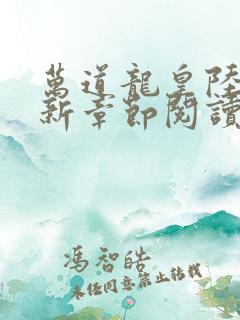 萬道龍皇陸
新章節閱讀
馮智皓
未經同意禁止轉載